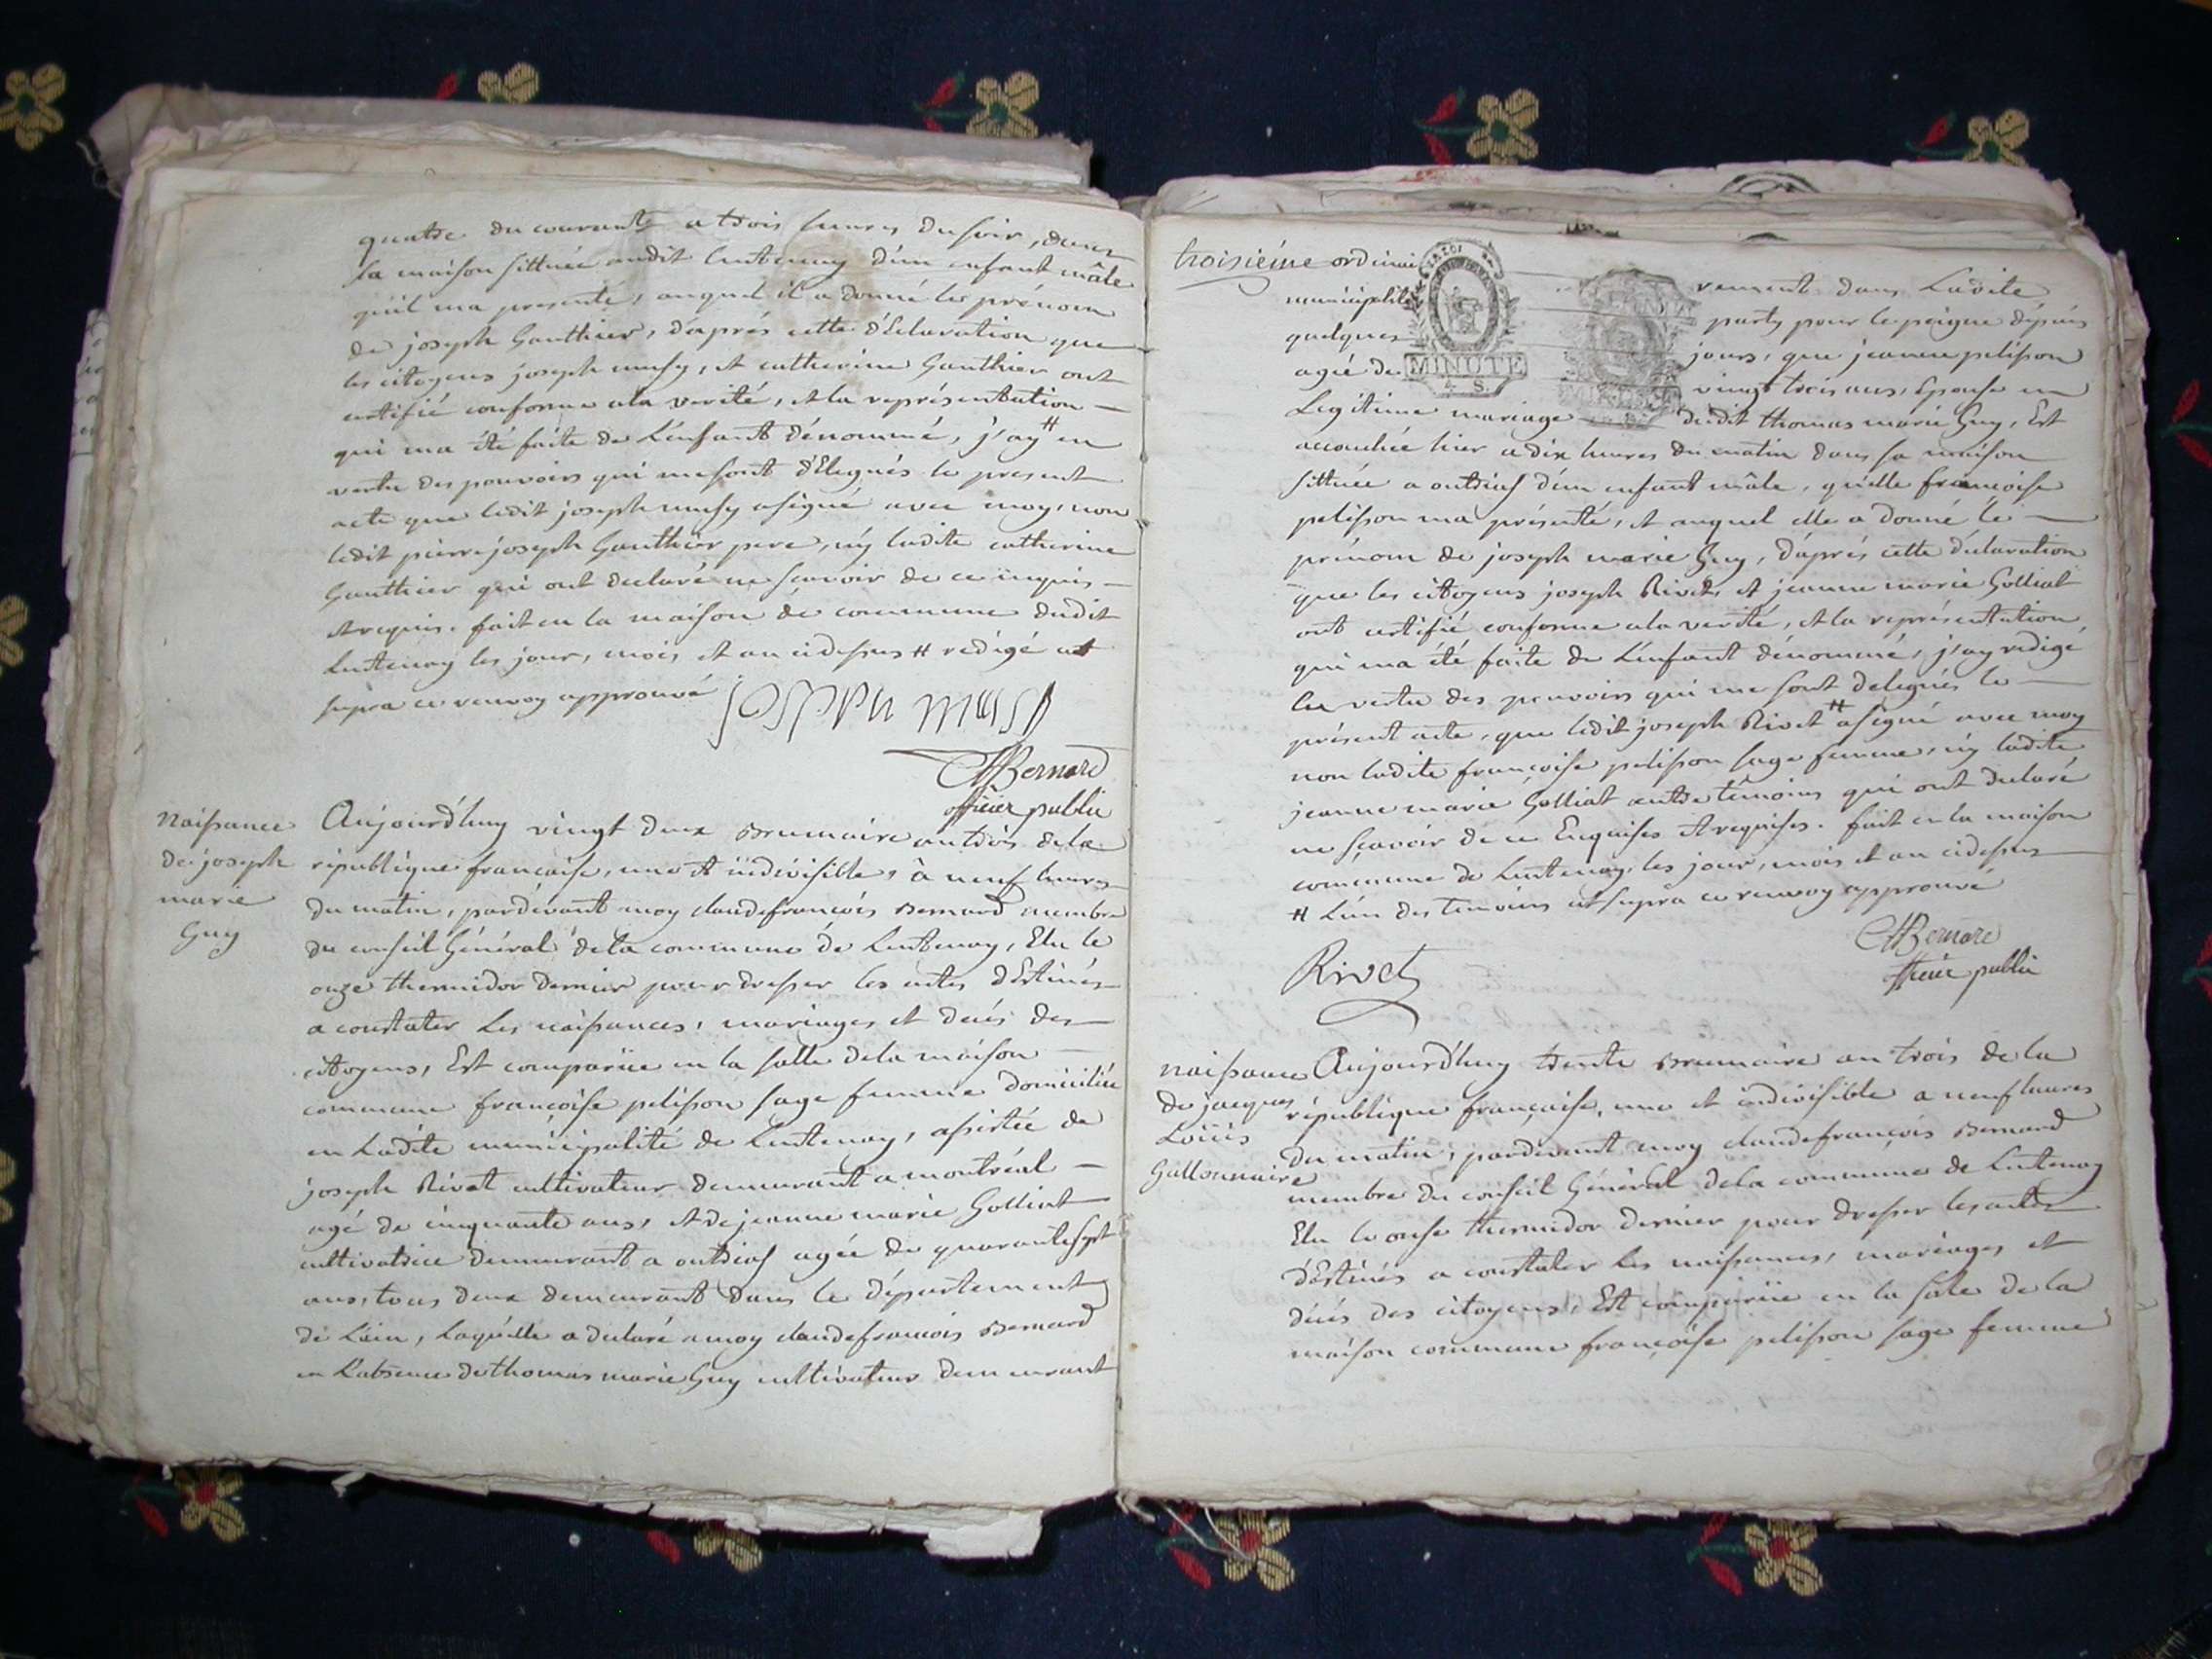 quatre du courant a trois heures du soir, dans
sa maison sittuée audit Lentenay d'un enfant mâle
qu'il ma presenté, auquel il a donné les prénom
de joseph Gauthier, d'aprés cette déclaration que
les citoyens joseph musy, et catherine Gauthier ont
certifié conforme ala verité, et la représentation
qui ma été faite de L'enfant dénommé, j'ay # en
vertu des pouvoirs qui me sont délegués le present
acte que ledit joseph musy a signé avec moy, non
ledit pierre joseph Gauthier pere, ny ladite catherine
Gauthier qui ont declaré ne scavoir de ce enquis
et requis. fait en la maison de commune dudit
Lentenay les jour, mois et an cidessus # redigé ut
supra ce renvoy approuvé
Bernard
officier public
Naissance
de joseph
marie
Guy
Aujourd'huy vingt deux Brumaire an trois de la
république francaise, une et indivisible, à neuf heures
du matin, pardevant moy claude francois Bernard membre
du conseil Général de la commune de Lentenay, Elu le
onze thermidor dernier pour dresser les actes déstinés
a constater les naissances, mariages et decés des
citoyens, Est comparüe en la salle de la maison
commune francoise pelisson sage femme domiciliée
en Ladite municipalité de Lentenay, assistée de
joseph Rivet cultivateur demeurant a montréal
agé de cinquante ans, et de jeanne marie Golliat
cultivatrice demeurant a outriaf agée de quarante sept
ans, tous deux demeurant dans le département
de L'ain, Laquelle a declaré a moy claude francois Bernard
en L'absence de thomas marie Guy cultivateur demeurant
troisiéme ordinai
rement dans Ladite
municipalité
party pour le peigne dépuis
quelques
jours, que jeanne pelisson
agée de
vingt trois ans, épouse en
MINUTE
4. S.
Legitime mariage dudit thomas marie Guy, Est
accouchée hier a dix heures du matin dans sa maison
sittuée a outriaf d'un enfant mâle, qu'elle francoise
pelisson ma présenté, et auquel elle a donné le
prénom de joseph marie Guy, d'aprés cette déclaration
que les citoyens joseph Rivet, et jeanne marie Golliat
ont certifié conforme ala verité, et la représentation
qui ma été faite de L'enfant dénommé, j'ay redigé
En vertu des pouvoirs qui me sont delegués le
présent acte, que ledit joseph Rivet # a signé avec moy
non ladite françoise pelisson sage femme, ny ladite
jeanne marie Golliat autre témoins qui ont declaré
ne sçavoir de ce Enquises et requises. fait en la maison
commune de Lentenay, les jour, mois et an cidessus
# L'un des temoins ut supra ce renvoy approuvé
Bernard
officier public
Rivet
naissance
de jacques
Loüis
Gallonnaire
Aujourd'huy trente Brumaire an trois de la
république française, une et indivisible a neuf heures
du matin, pardevant moy claude françois Bernard
membre du conseil Général de la commune de Lentenay
Elu le onse thermidor dernier pour dresser les actes
déstinés a constater les naissances, mariages et
décés des citoyens, Est comparüe en la sale de la
maison commune françoise pelisson sage femme